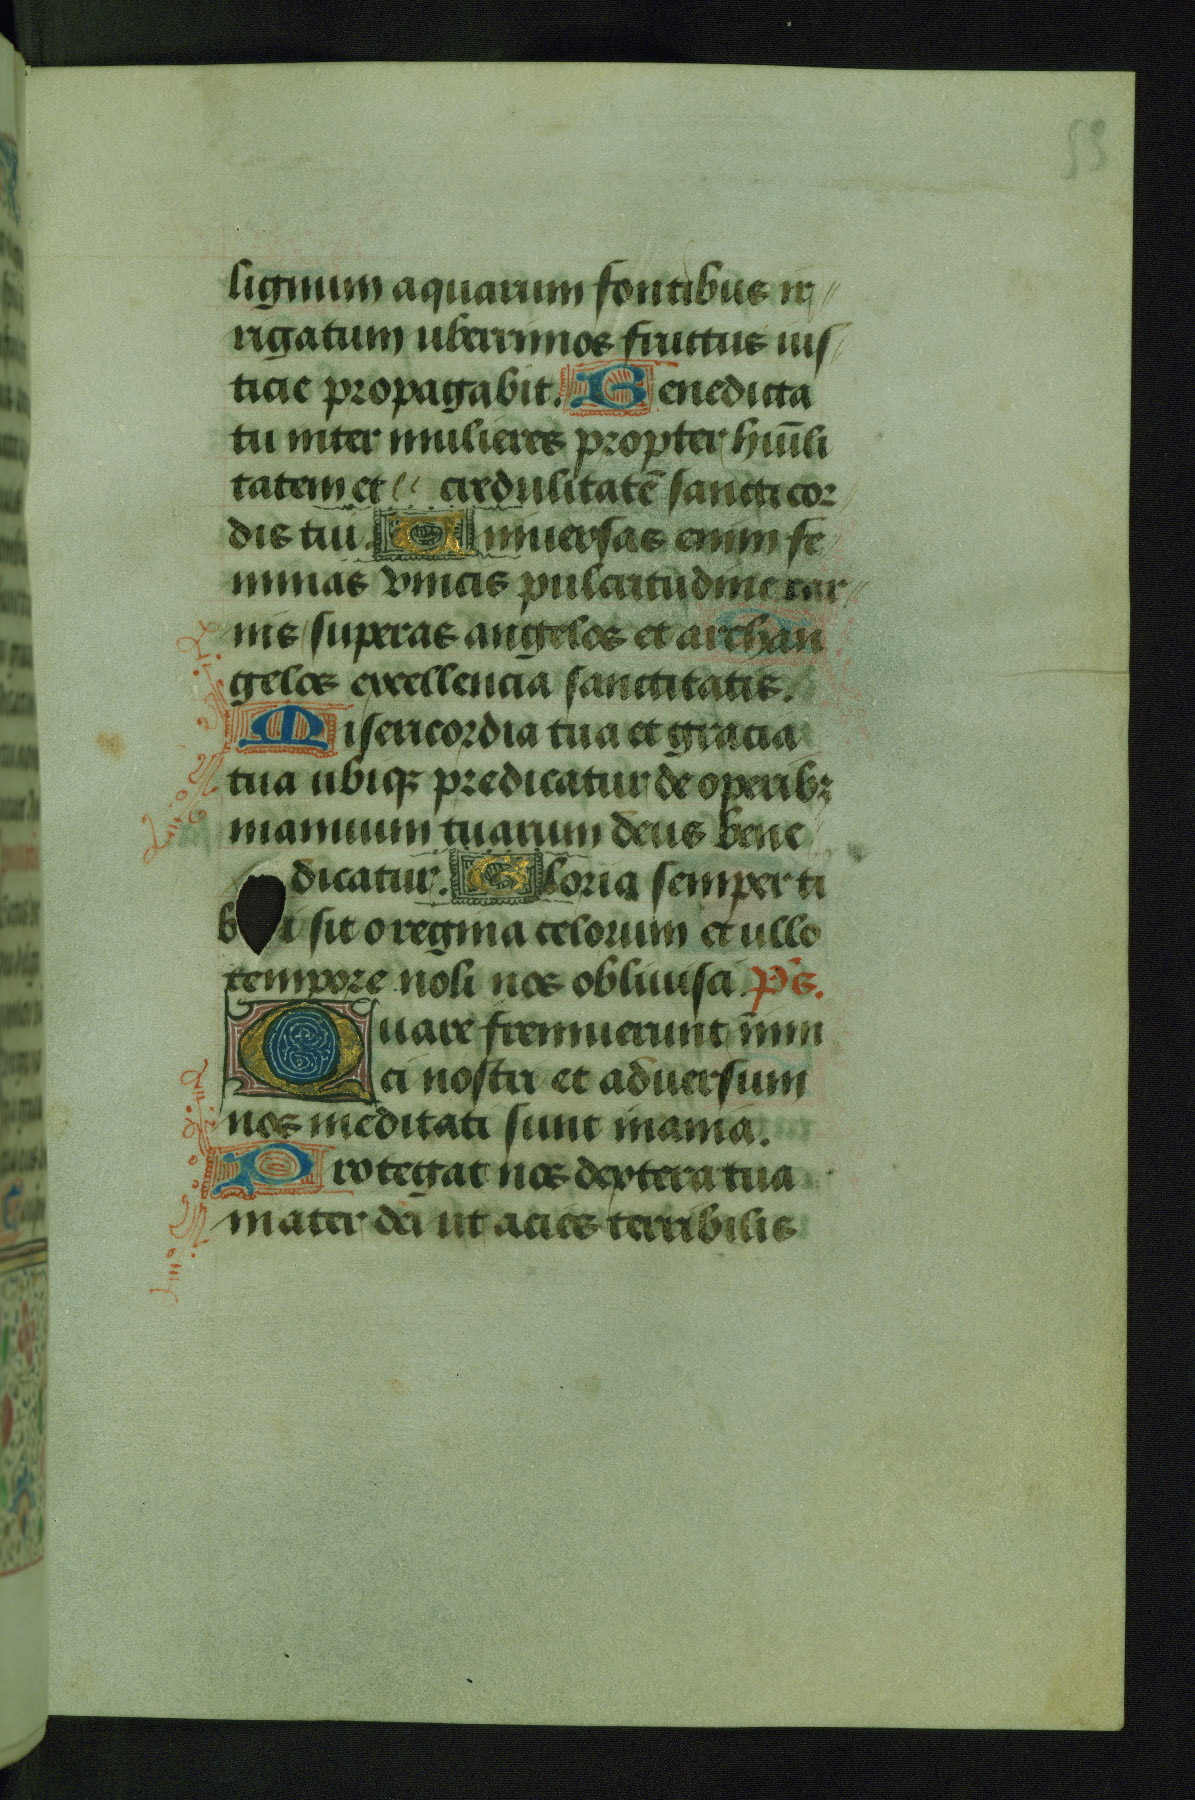 53
lignum aquarum fontibus ir
rigatum uberrimos fructus ius
ticie propagabit. Benedicta
tu inter mulieres propter hūīli
tatem et credulitatē sancti cor
dis tui. Vniuersas enim fe
minas vincis pulcritudine car
nis superas angelos et archan
gelos excellencia sanctitatis.
Misericordia tua et gracia
tua ubiqꝫ predicatur de operibꝫ
manuum tuarum deus bene
dicatur. Gloria semper ti
bi sit o regina celorum et ullo
tempore noli nos obliuisci. Ps.
Quare fremuerunt inimi
ci nostri et aduersum
nos meditati sunt inania.
Protegat nos dextera tua
mater dei ut acies terribilis